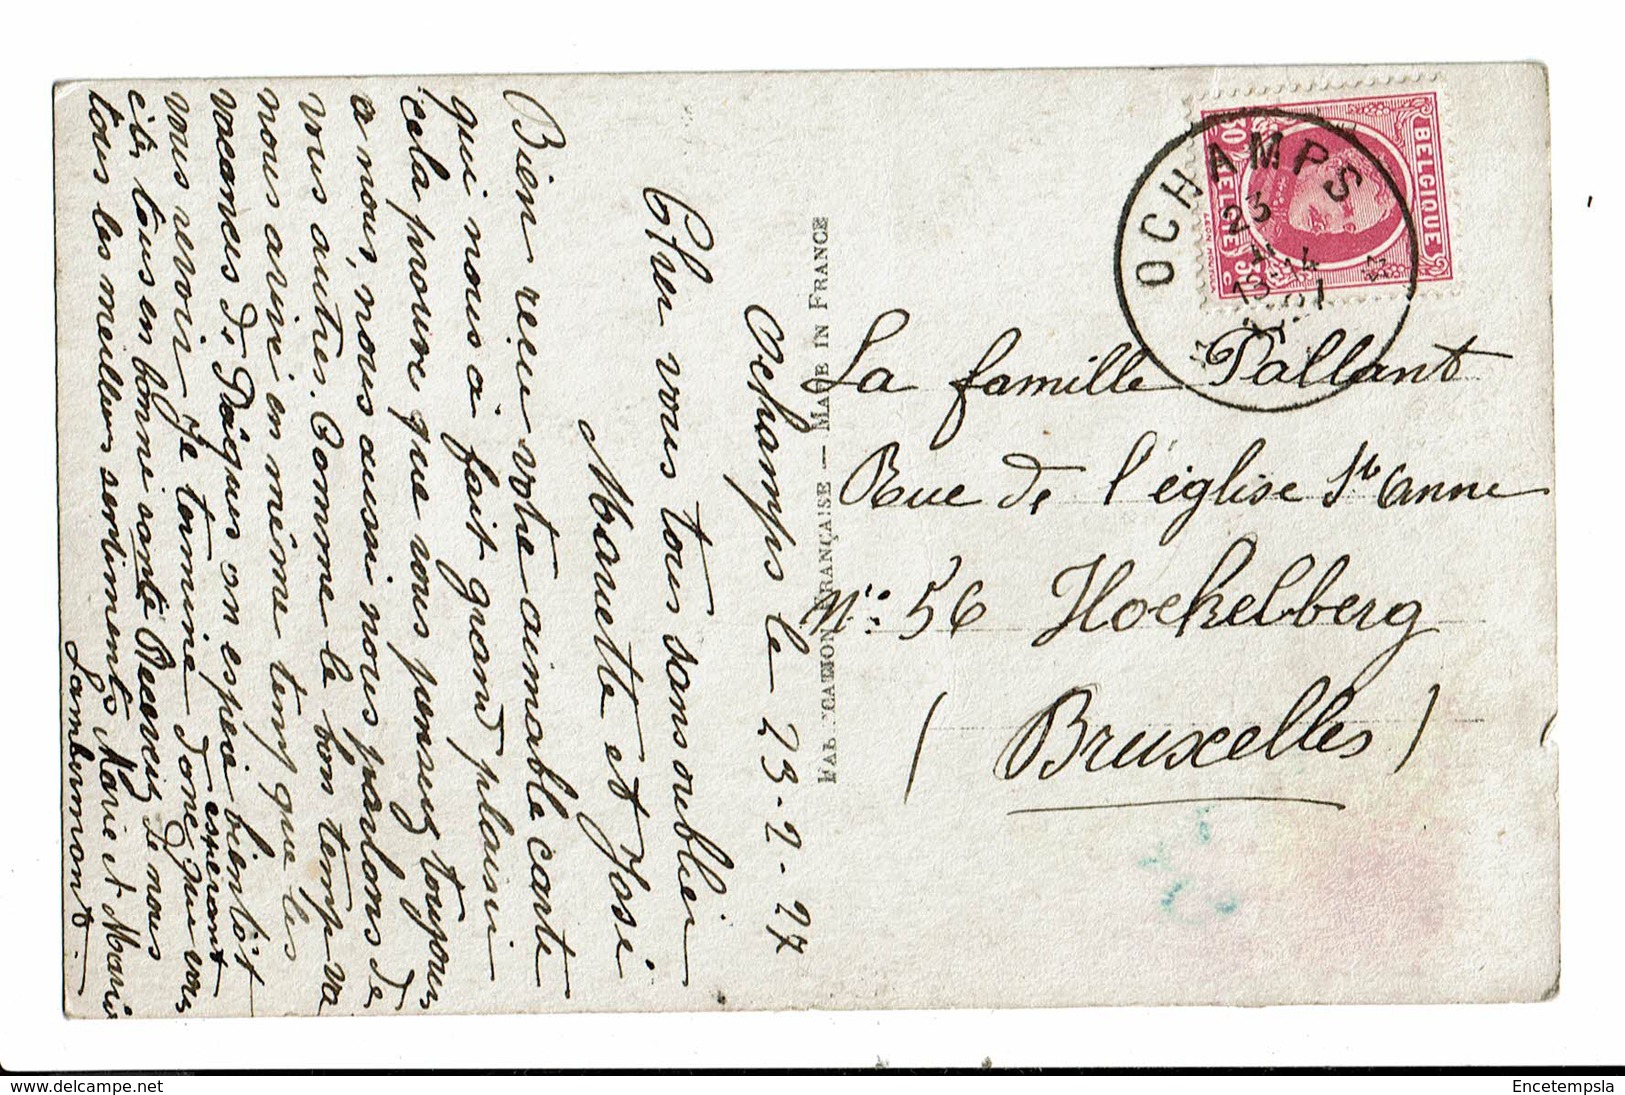 Ochamps le 23-2-27
Cher vous tous sans oublier
Mariette et José
Bien reçu votre aimable carte
qui nous à fait grand plaisir
cela prouve que vous pensez toujours
a nous, nous aussi nous parlons de
vous autres. Comme le bon temps va
nous arrivé en même temps que les
vacances de Pâques on espère bientôt
vous revoir Je termine donc esperant que vous
ête tous en bonne sante Recevez de nous
tous les meilleurs sentiments Marie et Marie
Lambermont.
FABRICATION FRANÇAISE — MADE IN FRANCE
BELGIQUE
BELGIE
30 c
OCHAMPS
23
13-14
La famille Pallant
Rue de l'église Ste Anne
No: 56 Hoekelberg
(Bruxelles)
delcampe.net
Encetempsla